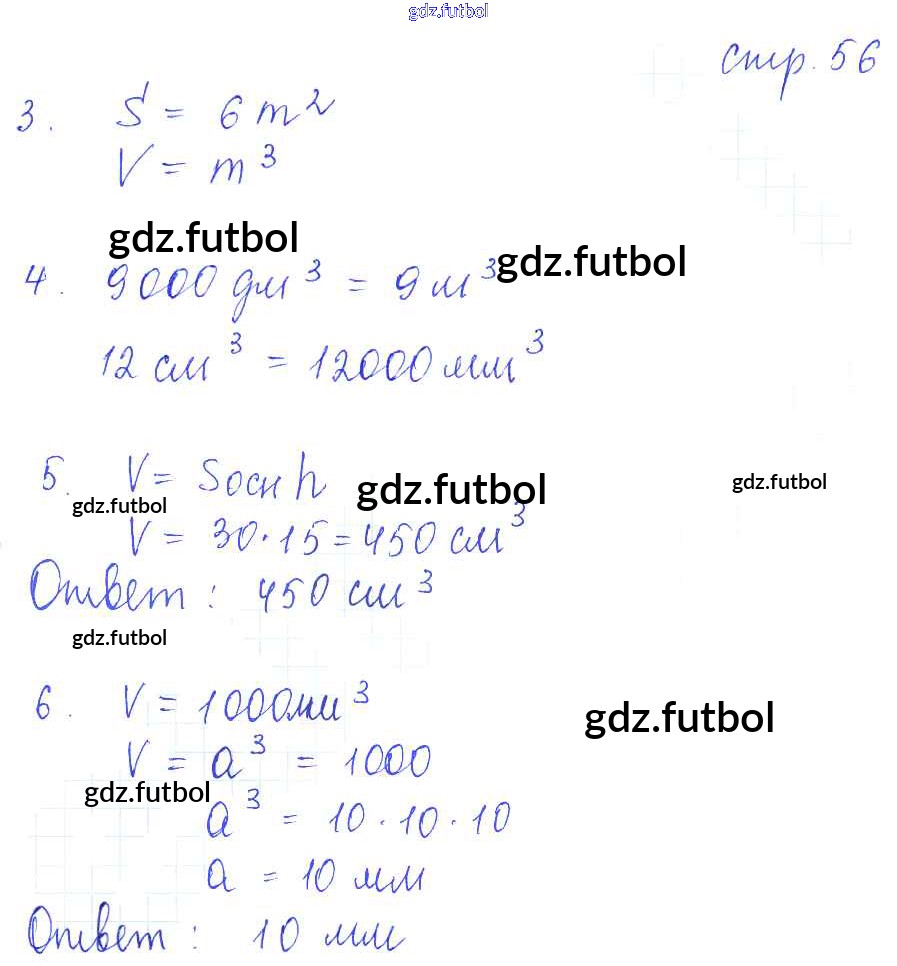 gdz.futbol
стр. 56
3. S = 6m²
V = m³
gdz.futbol
gdz.futbol
4. 9000 дм³ = 9 м³
12 см³ = 12000 мм³
5. V = Sосн h
gdz.futbol
gdz.futbol
gdz.futbol
V = 30·15 = 450 см³
Ответ: 450 см³
gdz.futbol
6. V = 1000мм³
gdz.futbol
V = a³ = 1000
gdz.futbol
a³ = 10·10·10
a = 10 мм
Ответ: 10 мм